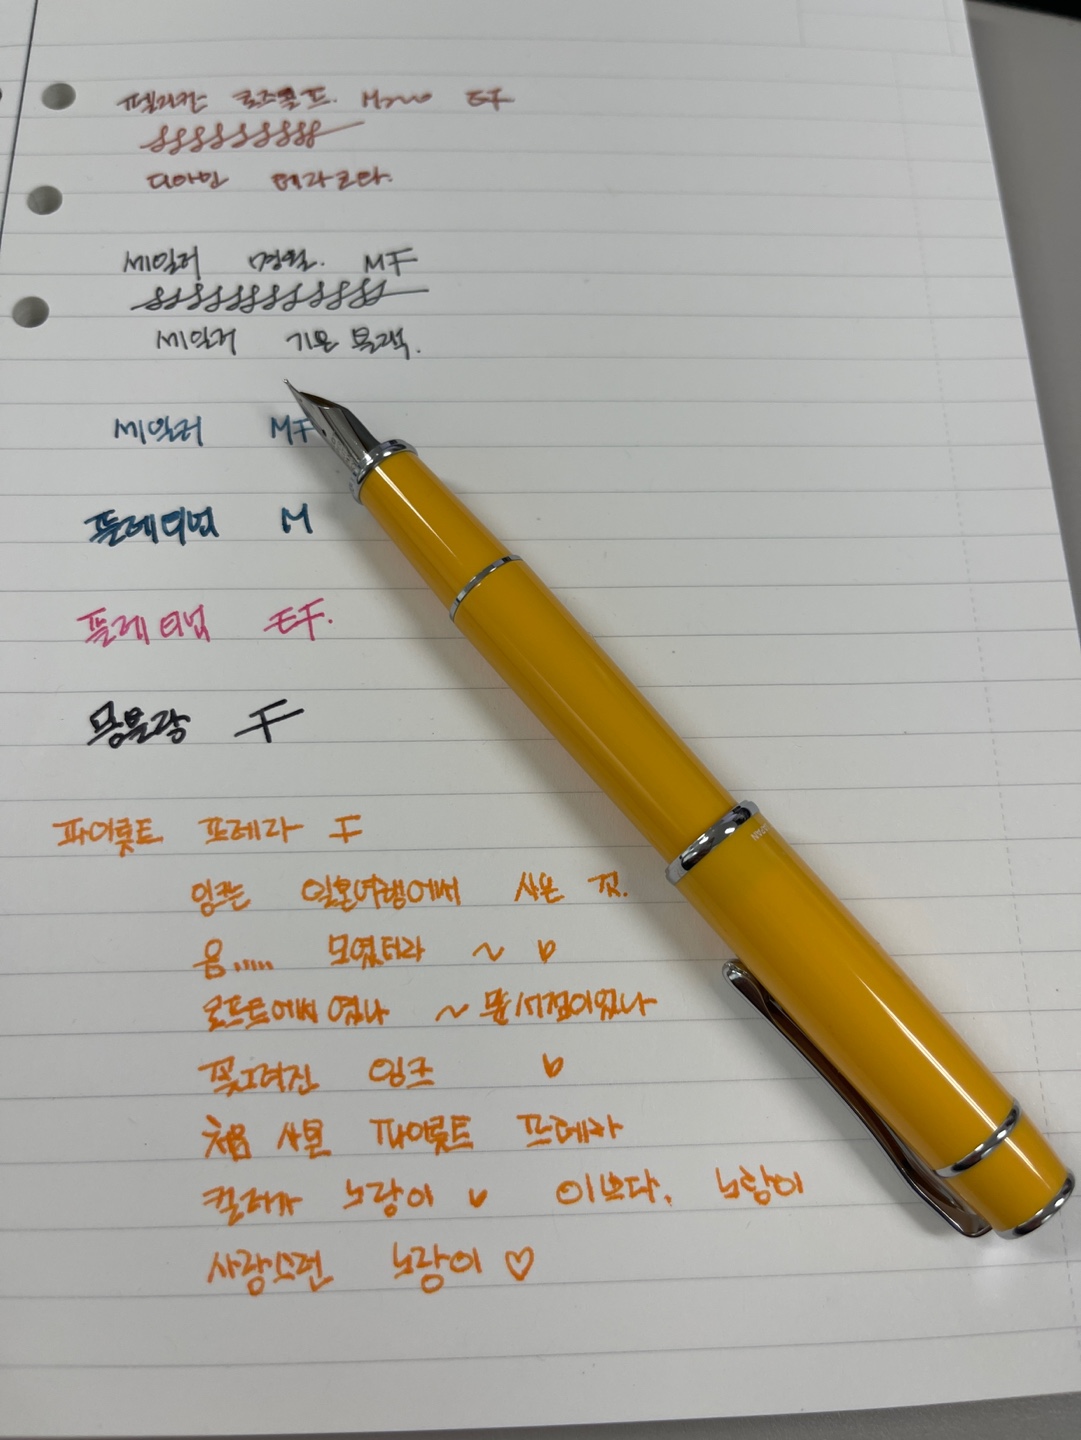 펠리칸 로즈골드. M200 EF
디아민 테라코타.
세일러 명월. MF
세일러 기온 목력.
세일러 MF
플레티넘 M
플레티넘 EF.
몽블랑 F
파이롯트 프레라 F
잉크는 일본여행에서 사온 것.
음..... 모였더라 ~
로프트에써 였나 ~ 뭔 서점이었나
꽃그려진 잉크
처음 사본 파이롯트 프레라
컬러가 노랑이 이쁘다. 노랑이
사랑스런 노랑이 ♡
JAPAN